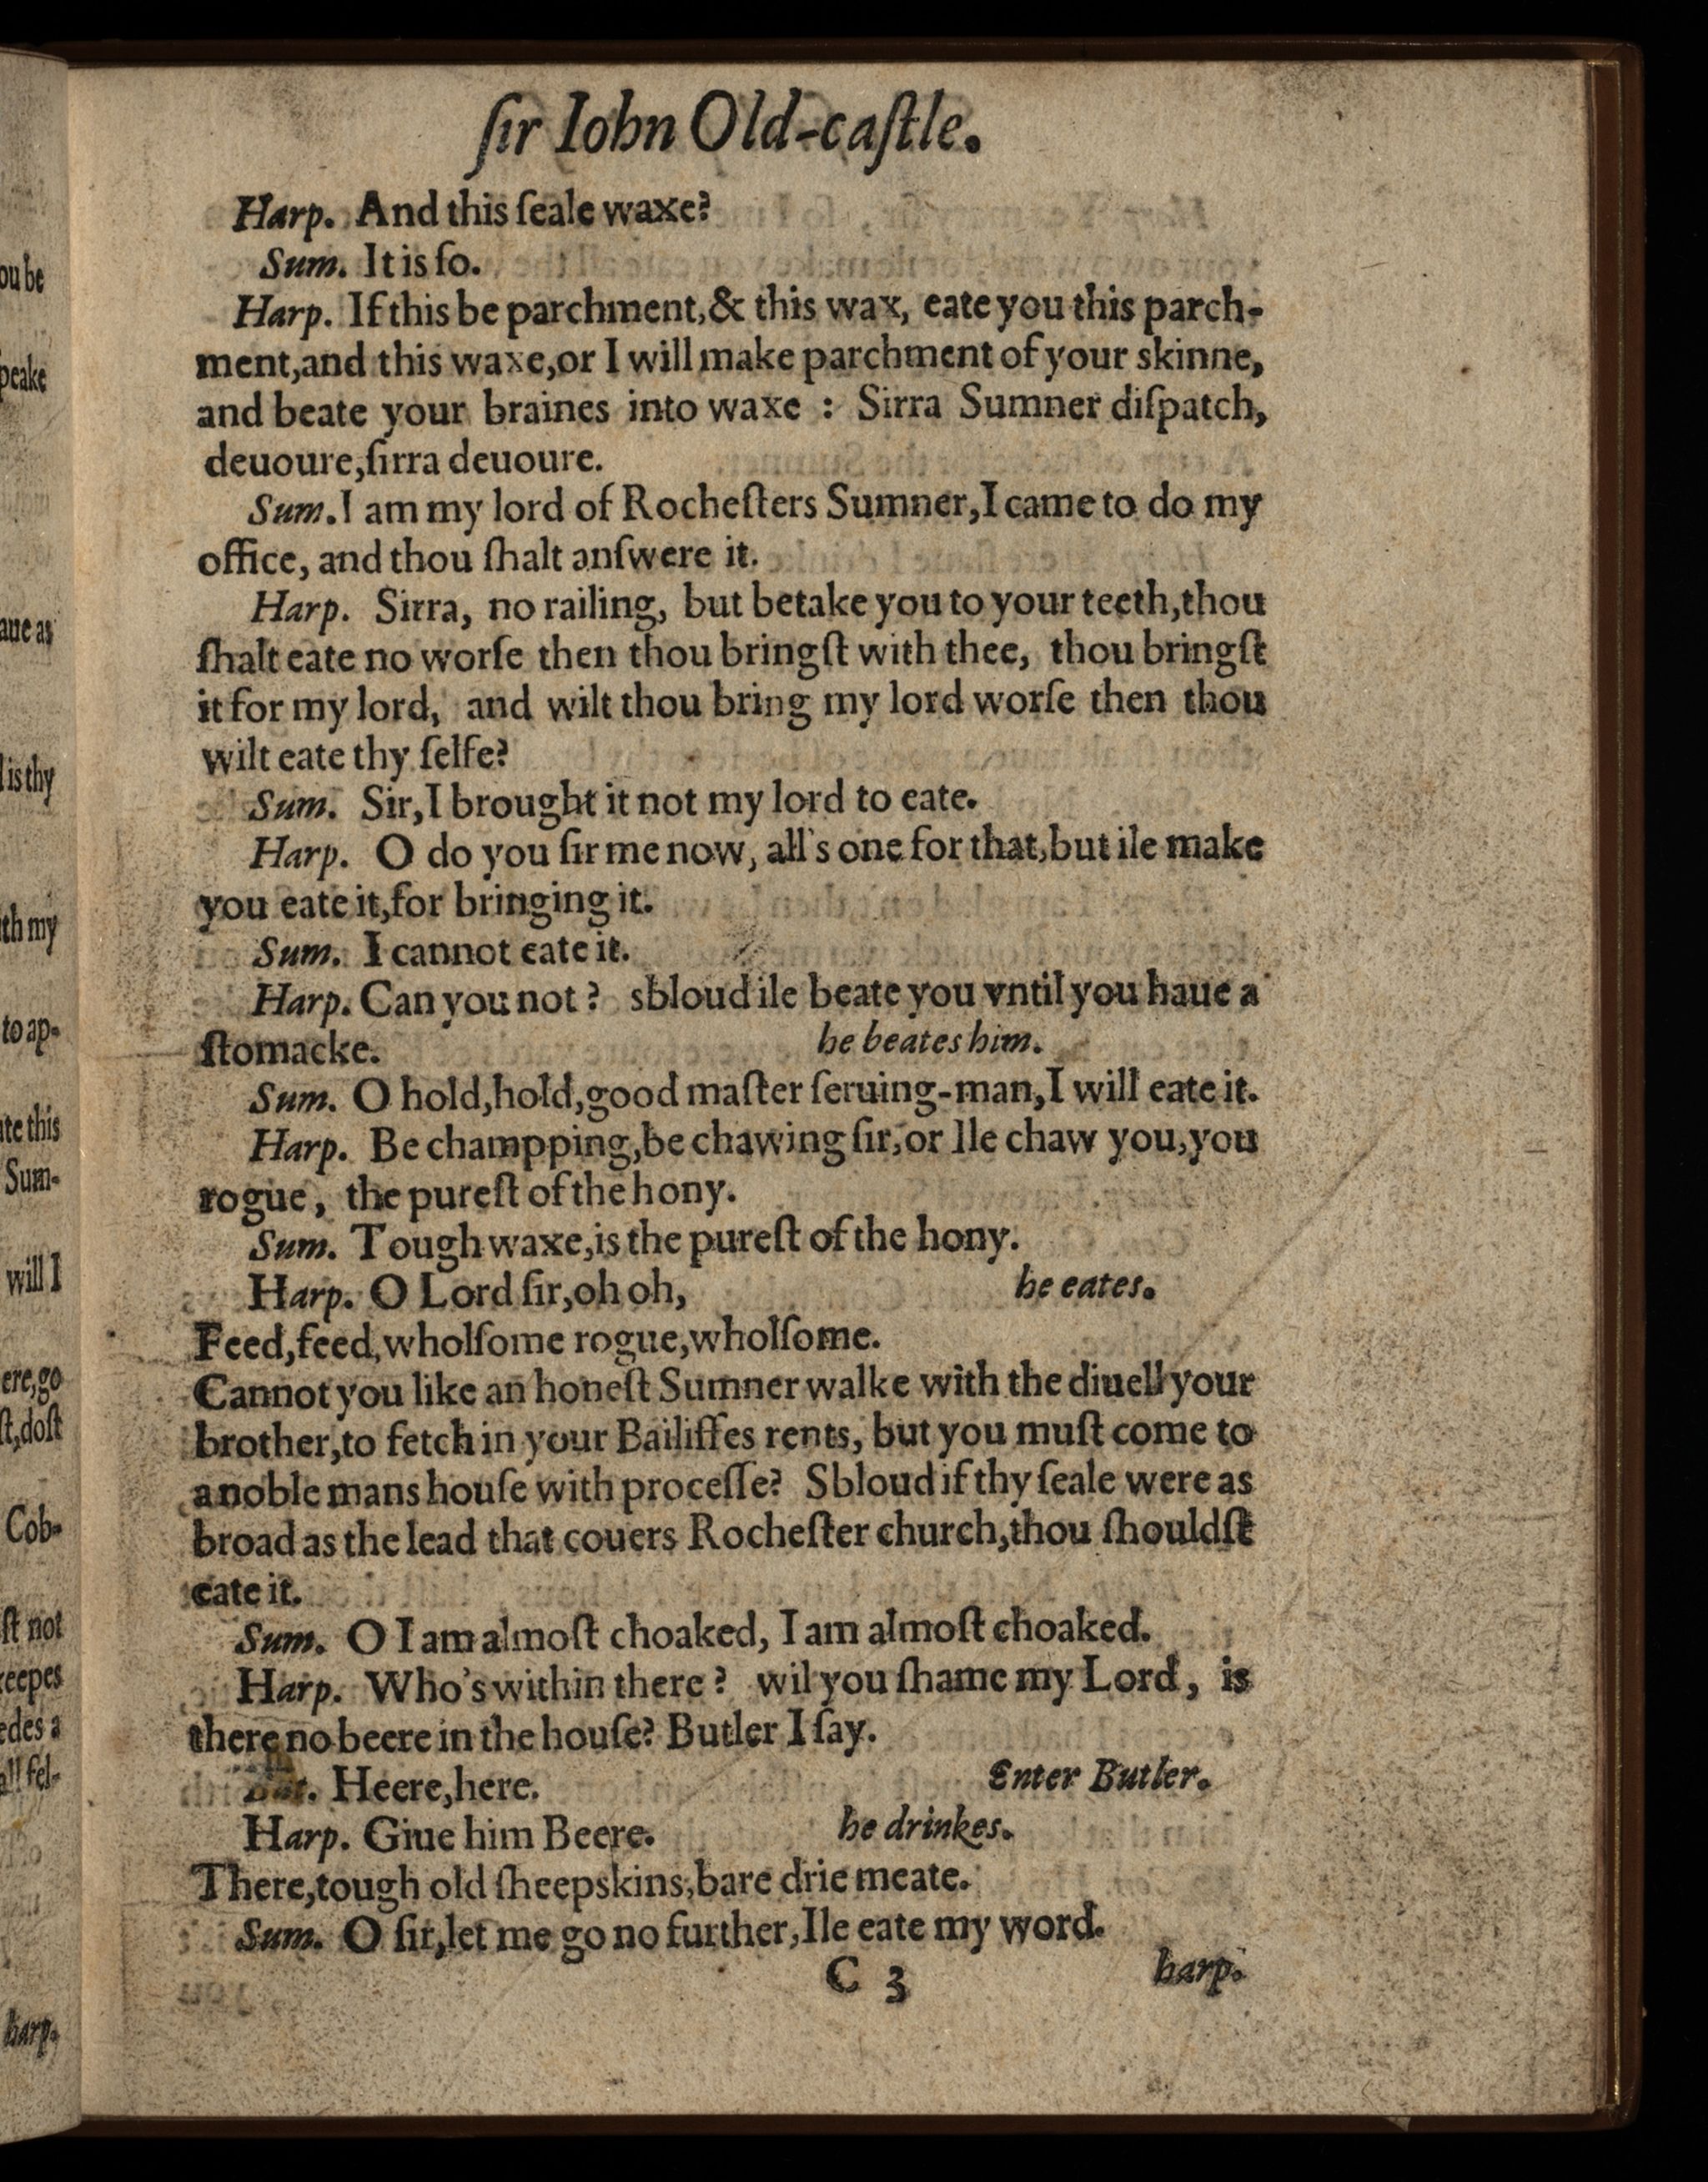 ſir Iohn Old-caſtle.
Harp. And this ſeale waxe?
Sum. It is ſo.
Harp. If this be parchment,& this wax, eate you this parch-
ment,and this waxe,or I will make parchment of your skinne,
and beate your braines into waxe : Sirra Sumner diſpatch,
deuoure,ſirra deuoure.
Sum.I am my lord of Rocheſters Sumner,I came to do my
office, and thou ſhalt anſwere it.
Harp. Sirra, no railing, but betake you to your teeth,thou
ſhalt eate no worſe then thou bringſt with thee, thou bringſt
it for my lord, and wilt thou bring my lord worſe then thou
wilt eate thy ſelfe?
Sum. Sir,I brought it not my lord to eate.
Harp. O do you ſir me now, all's one for that,but ile make
you eate it,for bringing it.
Sum. I cannot eate it.
Harp. Can you not ? sbloud ile beate you vntil you haue a
ſtomacke. he beates him.
Sum. O hold,hold,good maſter ſeruing-man,I will eate it.
Harp. Be champping,be chawing ſir,or Ile chaw you,you
rogue, the pureſt of the hony.
Sum. Tough waxe,is the pureſt of the hony.
Harp. O Lord ſir,oh oh, he eates.
Feed,feed,wholſome rogue,wholſome.
Cannot you like an honeſt Sumner walke with the diuell your
brother,to fetch in your Bailiffes rents, but you muſt come to
a noble mans houſe with proceſſe? Sbloud if thy ſeale were as
broad as the lead that couers Rocheſter church,thou ſhouldſt
eate it.
Sum. O I am almoſt choaked, I am almoſt choaked.
Harp. Who's within there ? wil you ſhame my Lord, is
there no beere in the houſe? Butler I ſay.
But. Heere,here. Enter Butler.
Harp. Giue him Beere. he drinkes.
There,tough old ſheepskins,bare drie meate.
Sum. O ſir,let me go no further,Ile eate my word.
C 3 harp.
ou be
peake
aue as
is thy
th my
to ap-
te this
Sum-
will I
ere,go
ſt,doſt
Cob-
ſt not
eepes
edes a
all fel-
harp.